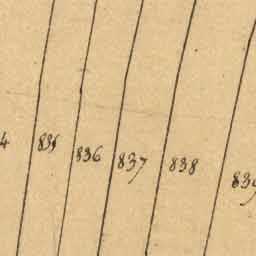 4 835 836 837 838 839